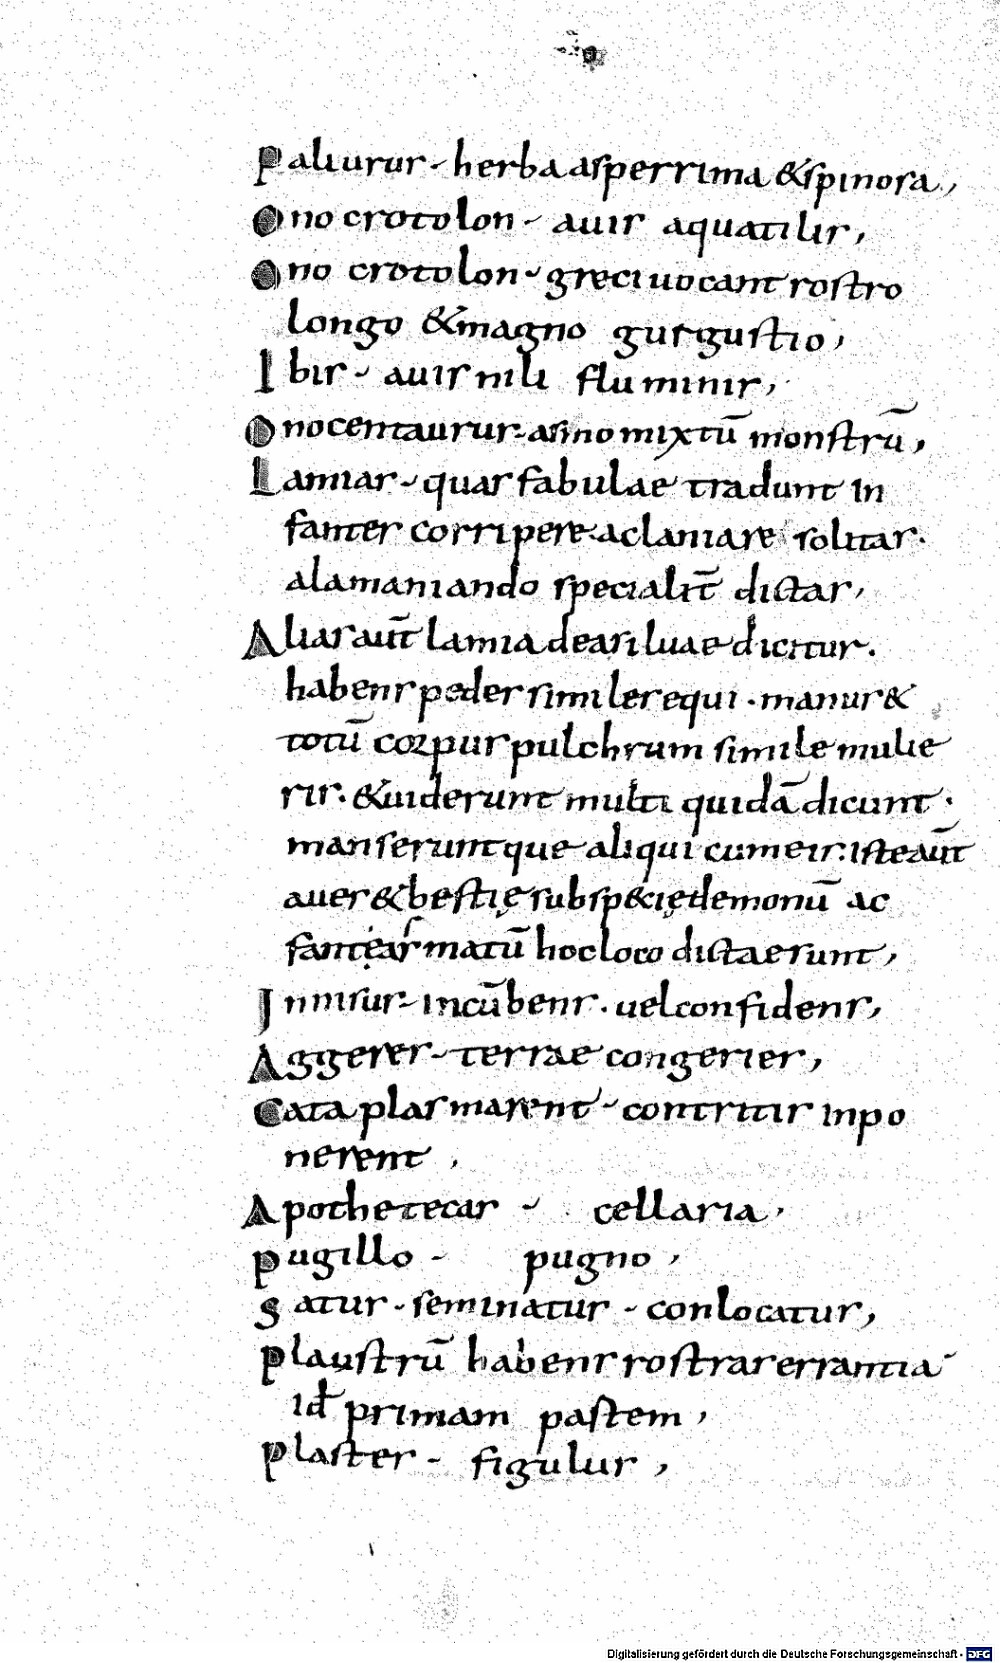 Paliurus - herba asperrima & spinosa,
Ono crotolon - avis aquatilis,
Ono crotolon - greci uocant rostro
longo & magno gurgustio,
Ibis - auis nili fluminis,
Onocentaurus - asino mixtū monstrū,
Lamias - quas fabulae tradunt in
fantes corripere ac laniare solitas.
a lamaniando specialit̄ dictas,
Alias aut̄ lamia dea siluae dicitur.
habens pedes similes equi . manus &
totū corpus pulchrum simile mulie
ris. & uiderunt multi quidā dicunt.
manseruntque aliqui cum eis. iste aut̄
aues & bestię sub sp&ię demonū ac
fantęasmatū hoc loco dictae sunt,
Innisus - incūbens . uel confidens,
Aggeres - terrae congeries,
Cataplasmarent - contritis inpo
nerent ,
Apothetecas - cellaria,
pugillo - pugno ,
satur - seminatur - conlocatur,
plaustrū habens rostrar errantia
id primam pastem ,
plaster - figulus ,
Digitalisierung gefördert durch die Deutsche Forschungsgemeinschaft - DFG